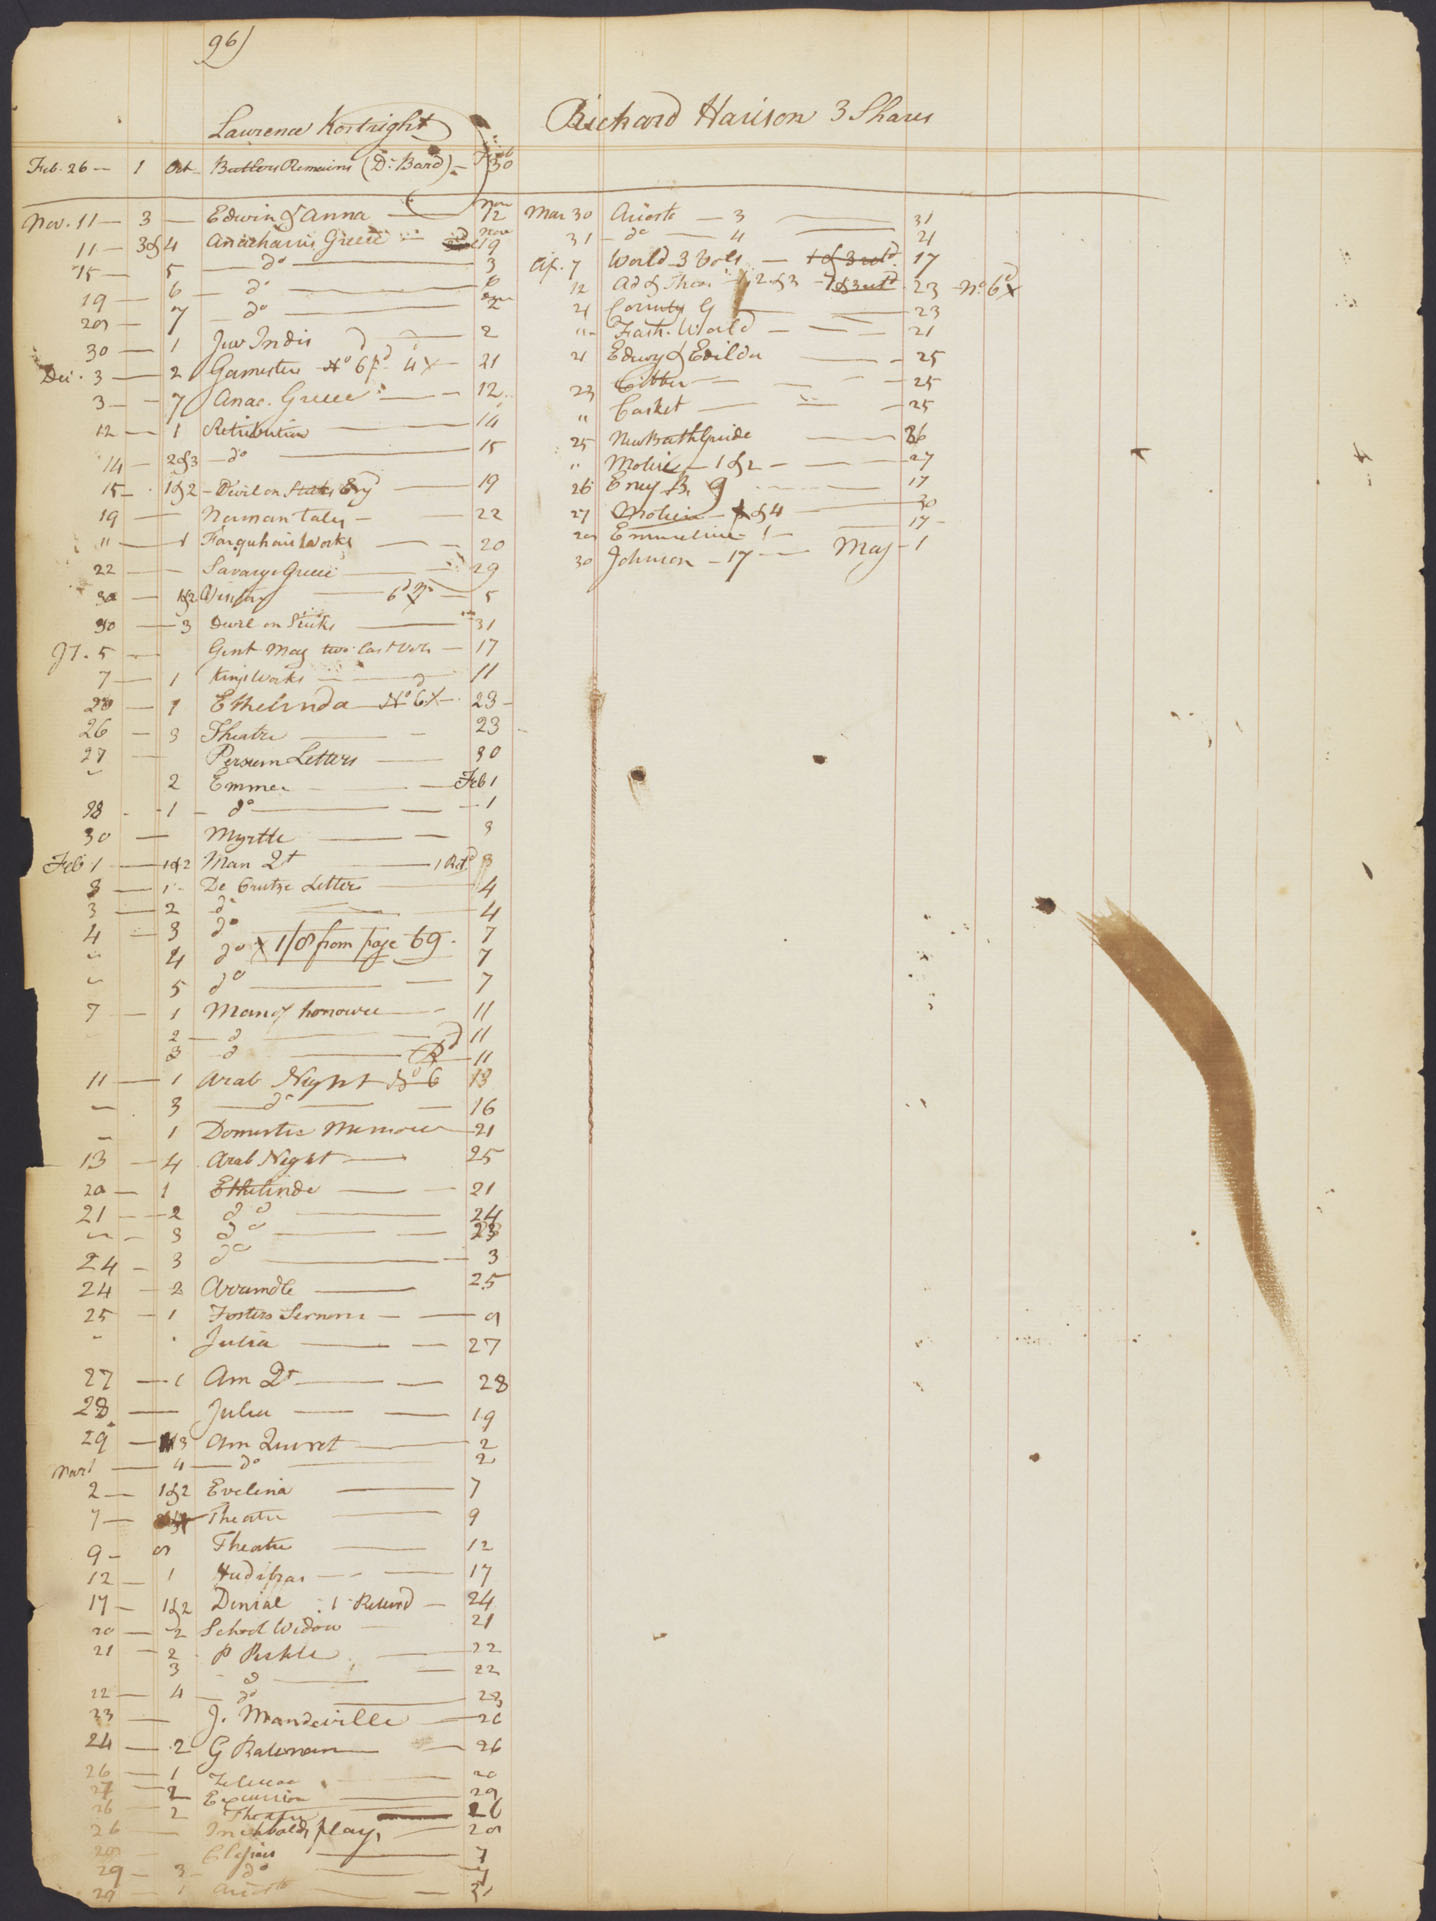 96)
Lawrence Kortright
Feb. 26 — 1 Oct Butlers Remains (Dr. Bard) — 30
Richard Harison 3 Shares
Nov. 11 — 3 — Edwin & Anna — Nov 12
11 — 3 & 4 Anacharsis Greece — Nov 19
15 — 5 — do — 3
19 — 6 — do — 6
20 — 7 — do — 2
30 — 1 Juv Indis — 2
Dec. 3 — 2 Gamesters No 6 pd 4 X — 21
3 — 7 Anac. Greece — 12
12 — 1 Retribution — 14
14 — 2 & 3 — do — 15
15 — 1 & 2 — Devil on Sticks Eng — 19
19 — Norman Tales — 22
" — 1 Farquhars Works — 20
22 — Savary Greece — 29
30 — 1 & 2 — 6d X — 5
30 — 3 Devil on Sticks — 31
Jy. 5 — Gent Mag two last Vols — 17
7 — 1 Kings Works — 11
20 — 1 Ethelinda — No 6 X — 23
26 — 3 Theatre — 23
27 — Persian Letters — 30
" 2 Emmea — Feb 1
28 — 1 — do — 1
30 — Myrtle — 3
Feb 1 — 1 & 2 Man Qt — 1 Retd 3
3 — 1 — De Crutze Letters — 4
3 — 2 do — 4
4 — 3 do 7
" 4 do X 1/8 from page 69 — 7
" 5 do — 7
7 — 1 Man of honour — 11
2 — do — 11
3 do — Rd — 11
11 — 1 Arab Night No 6 13
" 3 — do — 16
" 1 Domestic Memoir — 21
13 — 4 Arab Night — 25
20 — 1 Ethelinde — 21
21 — 2 do — 24
" — 3 do — 23
24 — 3 do — 3
24 — 2 Arrundle — 25
25 — 1 Fosters Sermons — 9
" Julia — 27
27 — 1 Am Qt — 28
28 — Julia — 19
29 — 3 Am Qurret — 2
Mar 1 — 4 — do — 2
2 — 1 & 2 Evelina — 7
7 — Theatre — 9
9 — Theatre — 12
12 — 1 Hudibras — 17
17 — 1 & 2 Denial : 1 Returd — 24
20 — 2 School Widow — 21
21 — 2 P Pickle — 22
3 — do — 22
22 — 4 — do — 23
23 — J. Mandeville — 26
24 — 2 G Bateman — 26
26 — 1 Zelucoa — 20
27 — 2 Excursion — 29
26 — 2 Theatre — 26
26 — Inchbalds plays — 20
20 — — 7
29 — 3 — do — 7
29 — 1 Ariosto — 31
Mar 30 Ariosto — 3 — 31
31 — do — 4 — 21
Ap. 7 World 3 Vols — 1 & 3 retd. 17
12 Ad of Theo — 1 2 & 3 — 1 & 3 retd. 23 — No. 6d X
21 County G — 23
" Fash. World — 21
21 Edwy & Edilda — 25
23 Cibber — 25
" Casket — 25
25 New Bath Guide — 26
" Moliere — 1 & 2 — 27
26 Ency. B. 9 — 17
27 Moliere — & 4 — 30
20 Emmeline 1 — 17
30 Johnson — 17 — May — 1